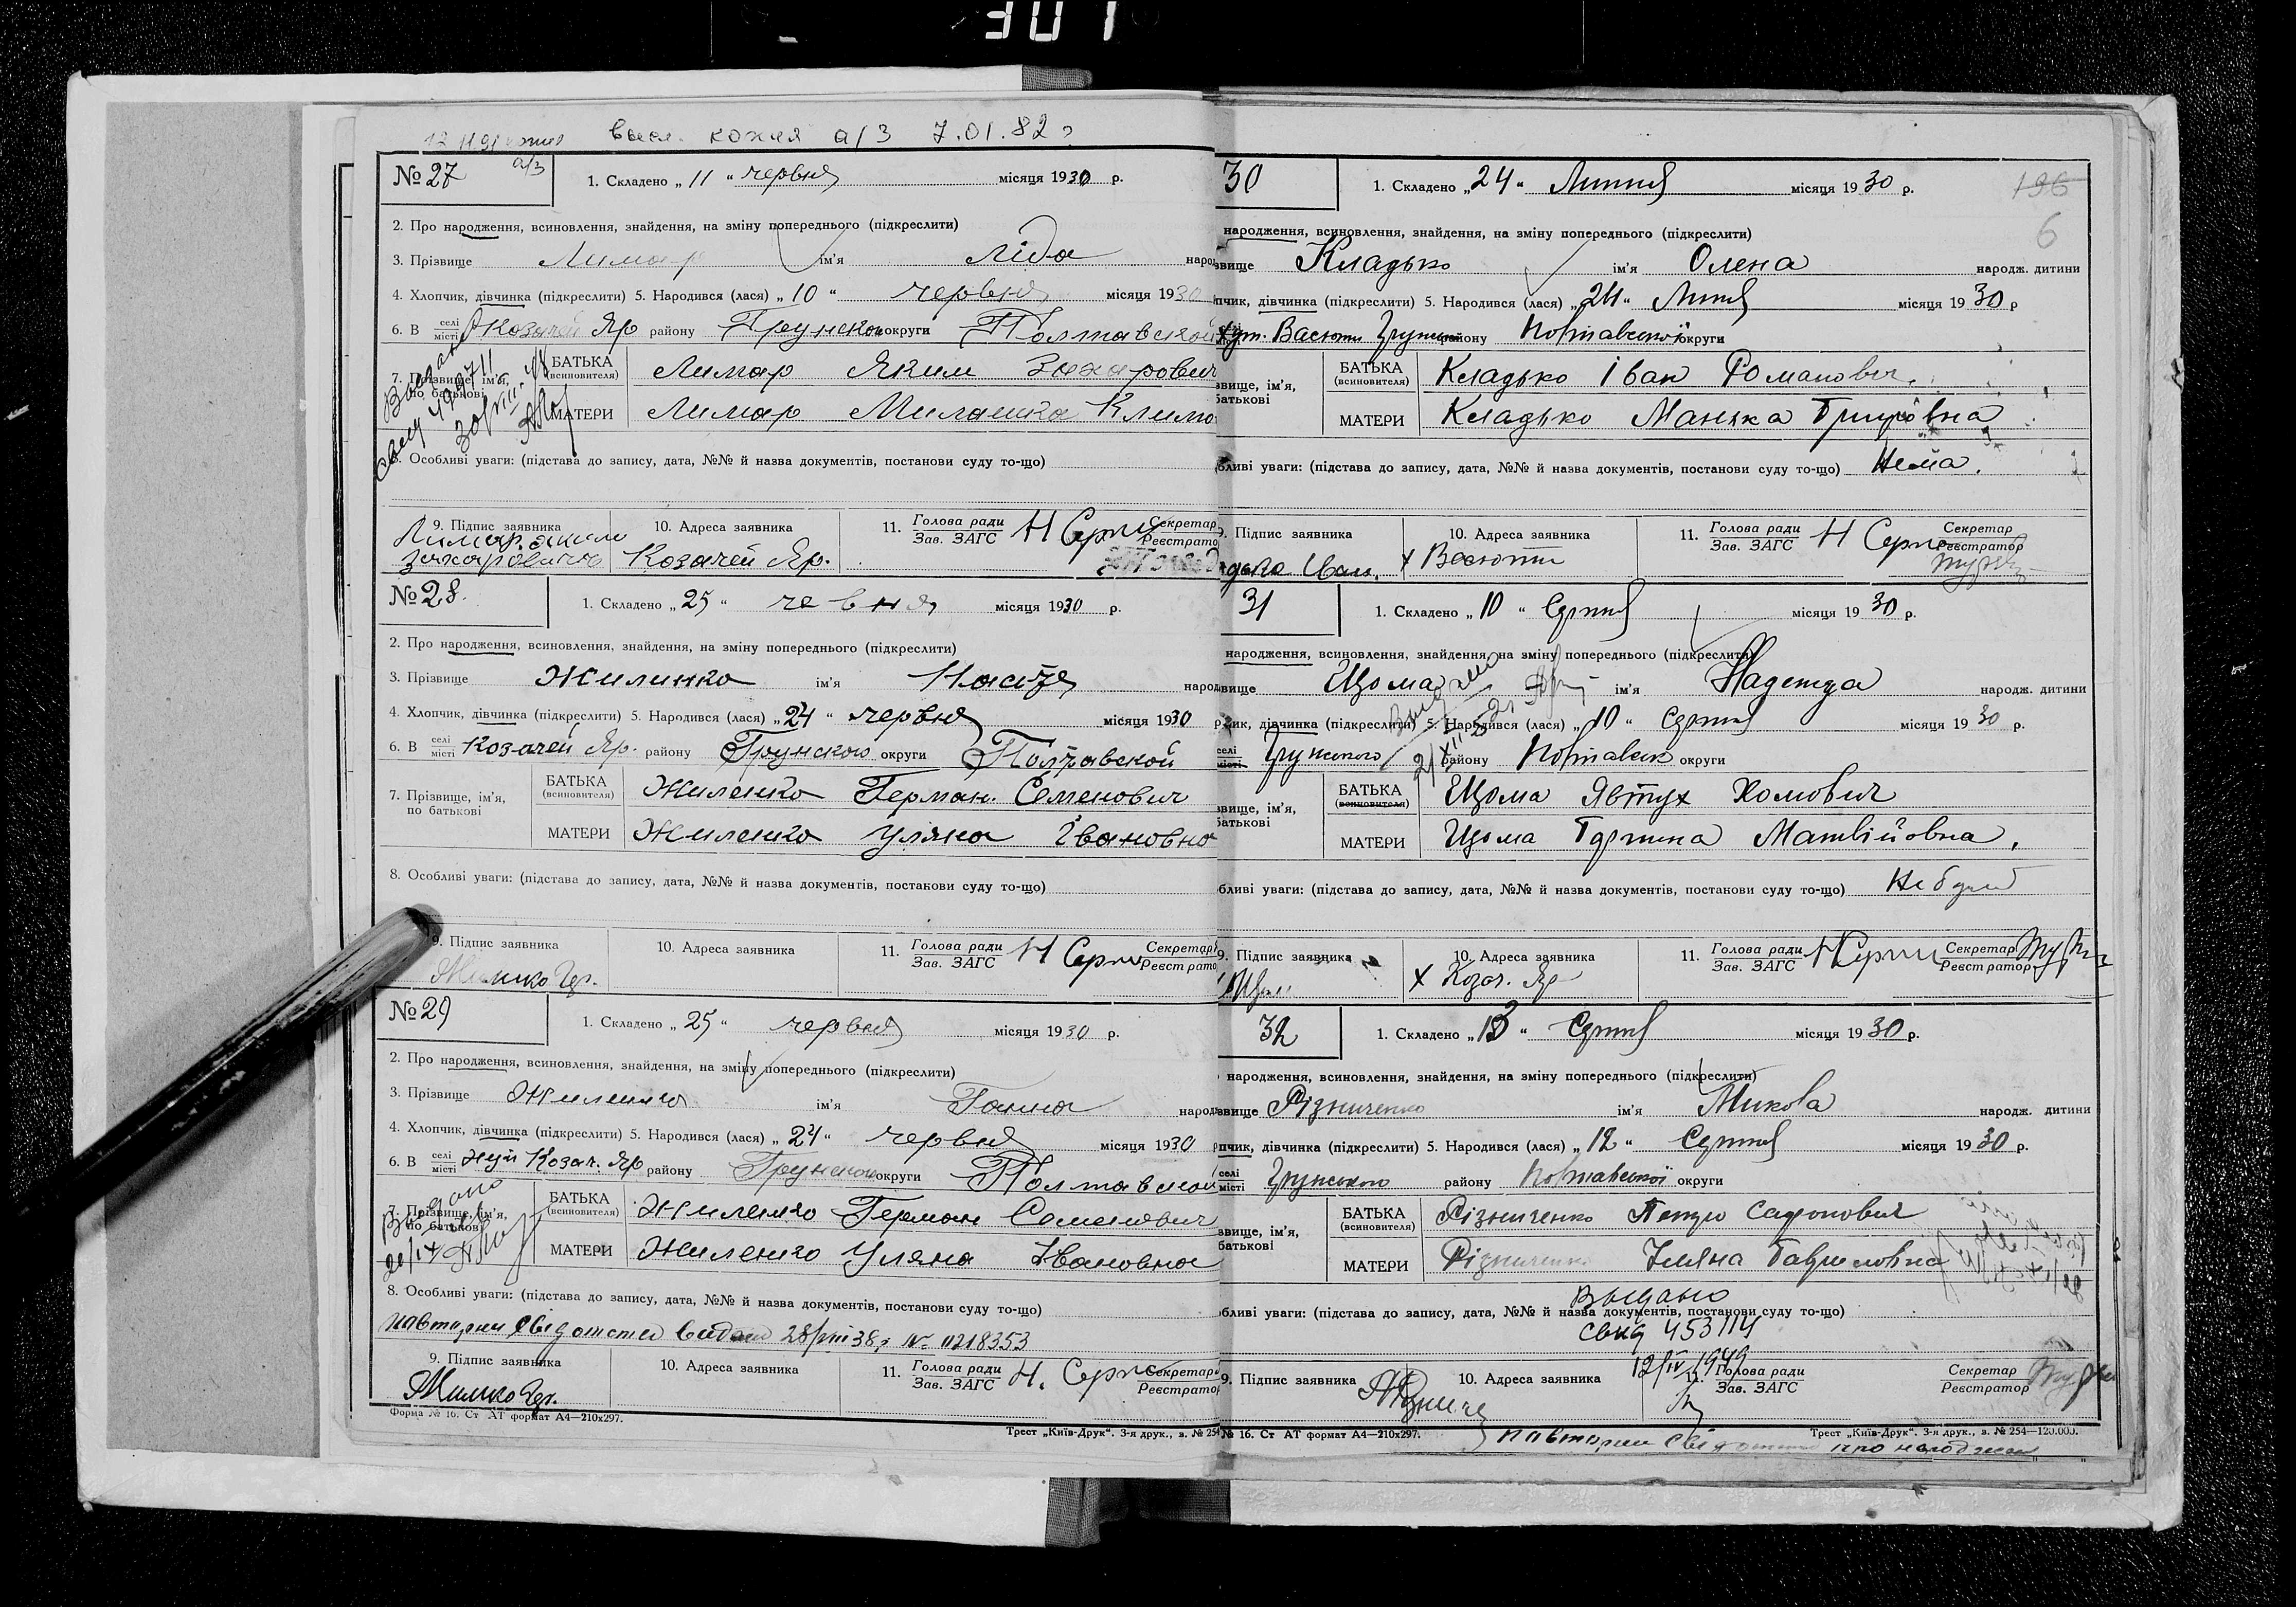 301
выс. копия а/з 7.01.82 г
№ 27 а/з
1. Складено „ 11 “ червня місяця 1930 р.
2. Про народження, всиновлення, знайдення, на зміну попереднього (підкреслити)
3. Прізвище Лимар ім'я Ліда народ
4. Хлопчик, дівчинка (підкреслити) 5. Народився (лася) „ 10 “ червня місяця 1930
6. В селі місті Козачей Яр району Грунском округи Полтавской
7. Прізвище, ім'я, по батькові
БАТЬКА (всиновителя) Лимар Яким Захарович
МАТЕРИ Лимар Милашка Климо
8. Особливі уваги: (підстава до запису, дата, №№ й назва документів, постанови суду то-що)
9. Підпис заявника Лимар Яким Захарович
10. Адреса заявника Козачей Яр.
11. Голова ради Зав. ЗАГС Секретар Реєстратор
№ 28.
1. Складено „ 25 “ червня місяця 1930 р.
2. Про народження, всиновлення, знайдення, на зміну попереднього (підкреслити)
3. Прізвище Жиленко ім'я Настя народ
4. Хлопчик, дівчинка (підкреслити) 5. Народився (лася) „ 24 “ червня місяця 1930 р
6. В селі місті Козачей Яр. району Грунского округи Полтавской
7. Прізвище, ім'я, по батькові
БАТЬКА (всиновителя) Жиленко Герман Семенович
МАТЕРИ Жиленко Уляна Івановна
8. Особливі уваги: (підстава до запису, дата, №№ й назва документів, постанови суду то-що)
9. Підпис заявника
10. Адреса заявника
11. Голова ради Зав. ЗАГС Секретар Реєстратор
№ 29
1. Складено „ 25 “ червня місяця 1930 р.
2. Про народження, всиновлення, знайдення, на зміну попереднього (підкреслити)
3. Прізвище Жиленко ім'я Ганна народ
4. Хлопчик, дівчинка (підкреслити) 5. Народився (лася) „ 24 “ червня місяця 1930 р
6. В селі місті Козач. Яр району Грунском округи Полтавской
7. Прізвище, ім'я, по батькові
БАТЬКА (всиновителя) Жиленко Герман Семенович
МАТЕРИ Жиленко Уляна Івановна
8. Особливі уваги: (підстава до запису, дата, №№ й назва документів, постанови суду то-що)
9. Підпис заявника
10. Адреса заявника
11. Голова ради Зав. ЗАГС Секретар Реєстратор
Форма № 16. Ст АТ формат А4—210х297.
Трест „Київ-Друк“. 3-я друк., з. № 254
30
196
6
1. Складено „ 24 “ Липня місяця 1930 р.
народження, всиновлення, знайдення, на зміну попереднього (підкреслити)
звище Кладько ім'я Олена народж. дитини
пчик, дівчинка (підкреслити) 5. Народився (лася) „ 24 “ Липня місяця 1930 р
хут. Васюти району Полтавської округи
звище, ім'я, батькові
БАТЬКА (всиновителя) Кладько Іван Романович.
МАТЕРИ Кладько Манька Григоровна
бливі уваги: (підстава до запису, дата, №№ й назва документів, постанови суду то-що) Нема.
9. Підпис заявника
10. Адреса заявника х Васюти
11. Голова ради Зав. ЗАГС Секретар Реєстратор
31
1. Складено „ 10 “ Серпня місяця 1930 р.
народження, всиновлення, знайдення, на зміну попереднього (підкреслити)
звище Цьома ім'я Надежда народж. дитини
чик, дівчинка (підкреслити) 5. Народився (лася) „ 10 “ Серпня місяця 1930 р.
селі місті Грунського району Полтавськ округи
звище, ім'я, батькові
БАТЬКА (всиновителя) Цьома Явтух Хомович
МАТЕРИ Цьома Горпина Матвійовна.
бливі уваги: (підстава до запису, дата, №№ й назва документів, постанови суду то-що)
9. Підпис заявника
10. Адреса заявника х Козач. Яр
11. Голова ради Зав. ЗАГС Секретар Реєстратор
32
1. Складено „ 13 “ Серпня місяця 1930 р.
народження, всиновлення, знайдення, на зміну попереднього (підкреслити)
звище Різниченко ім'я Микола народж. дитини
пчик, дівчинка (підкреслити) 5. Народився (лася) „ 12 “ Серпня місяця 1930 р.
селі місті Грунського району Полтавської округи
звище, ім'я, батькові
БАТЬКА (всиновителя) Різниченко Петро Сафонович
МАТЕРИ Різниченко Уляна Гавриловна
Выдано
бливі уваги: (підстава до запису, дата, №№ й назва документів, постанови суду то-що)
свид 453114
12/IV 1949
9. Підпис заявника
10. Адреса заявника
11. Голова ради Зав. ЗАГС Секретар Реєстратор
№ 16. Ст АТ формат А4—210х297.
Трест „Київ-Друк“. 3-я друк., з. № 254—120.000.